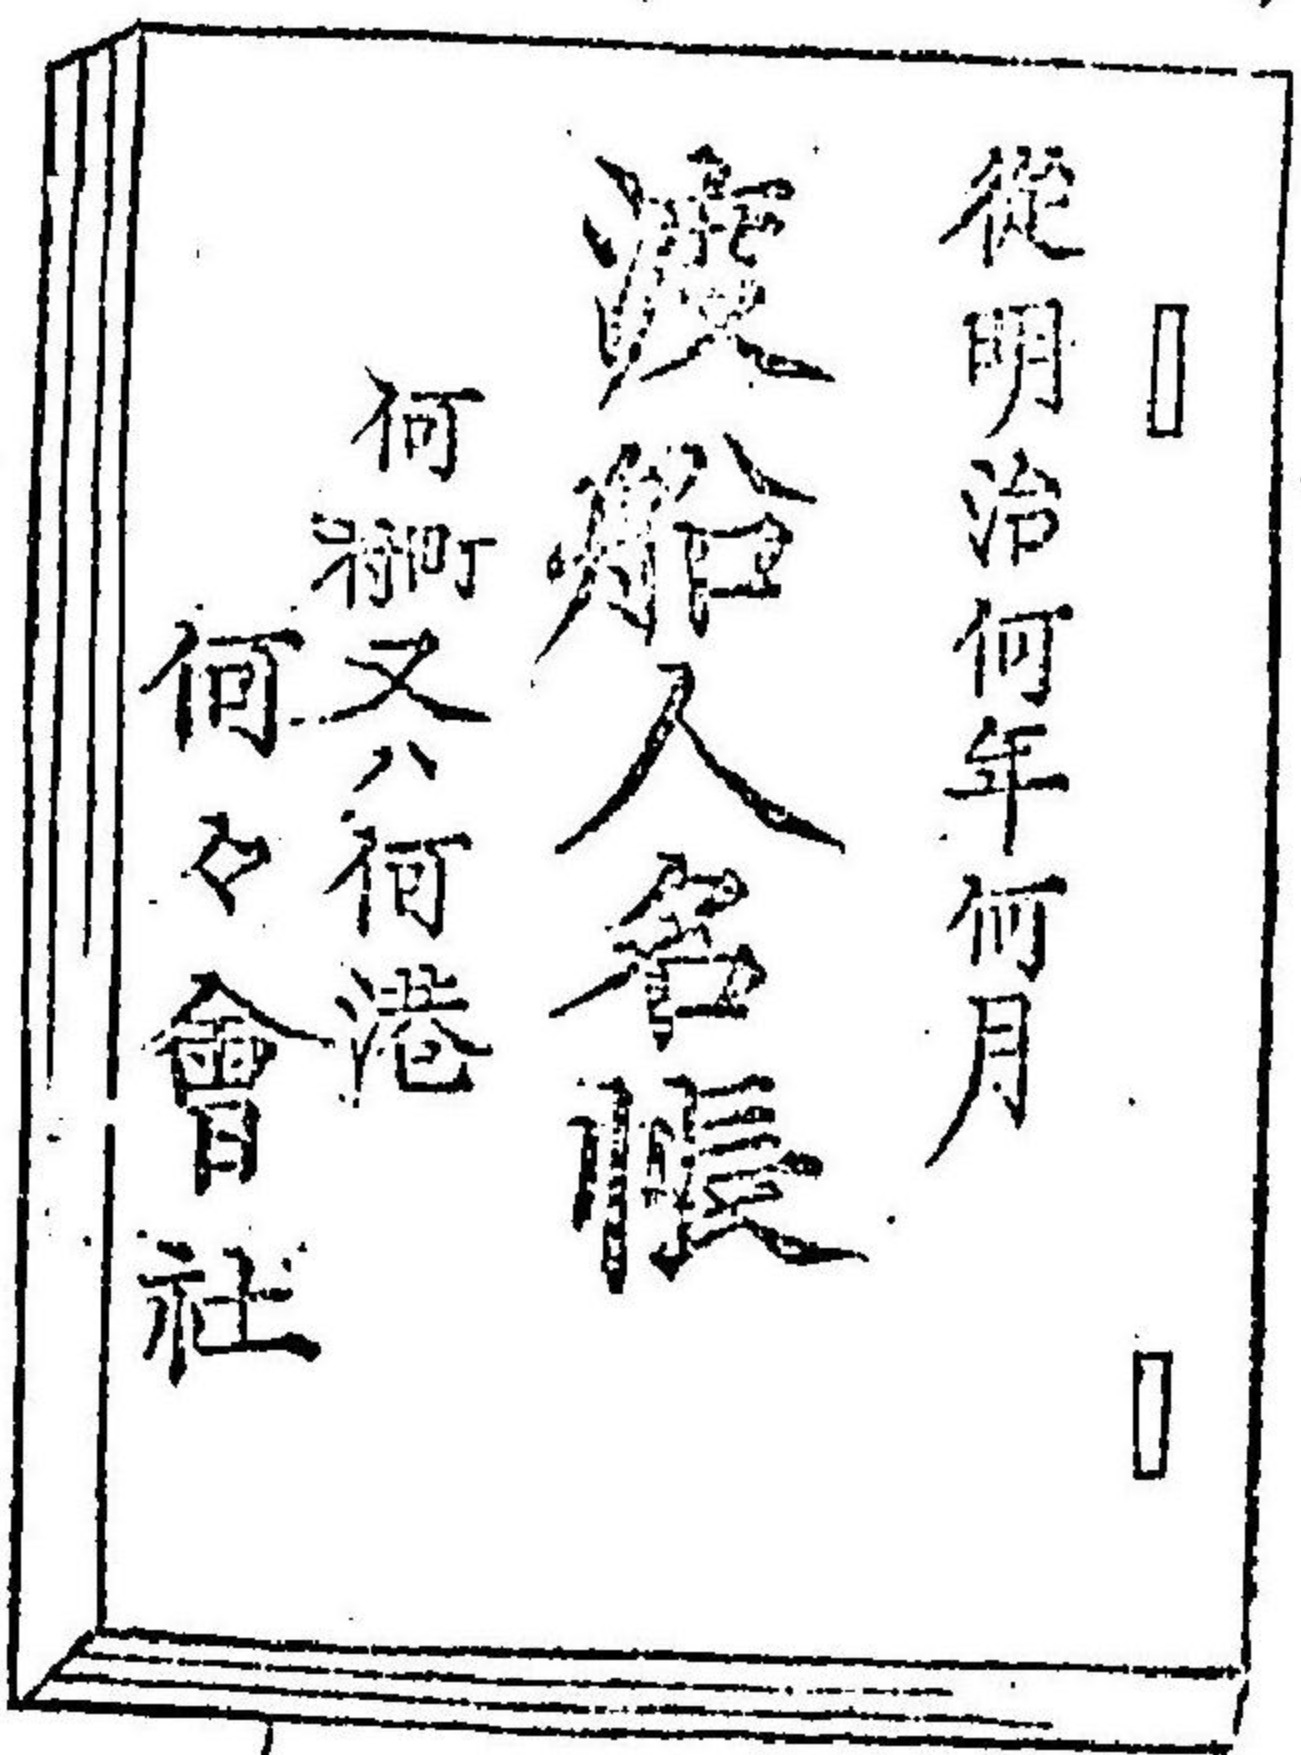 從明治何年何月
渡船人名帳
何村町又ハ何港
何々會社